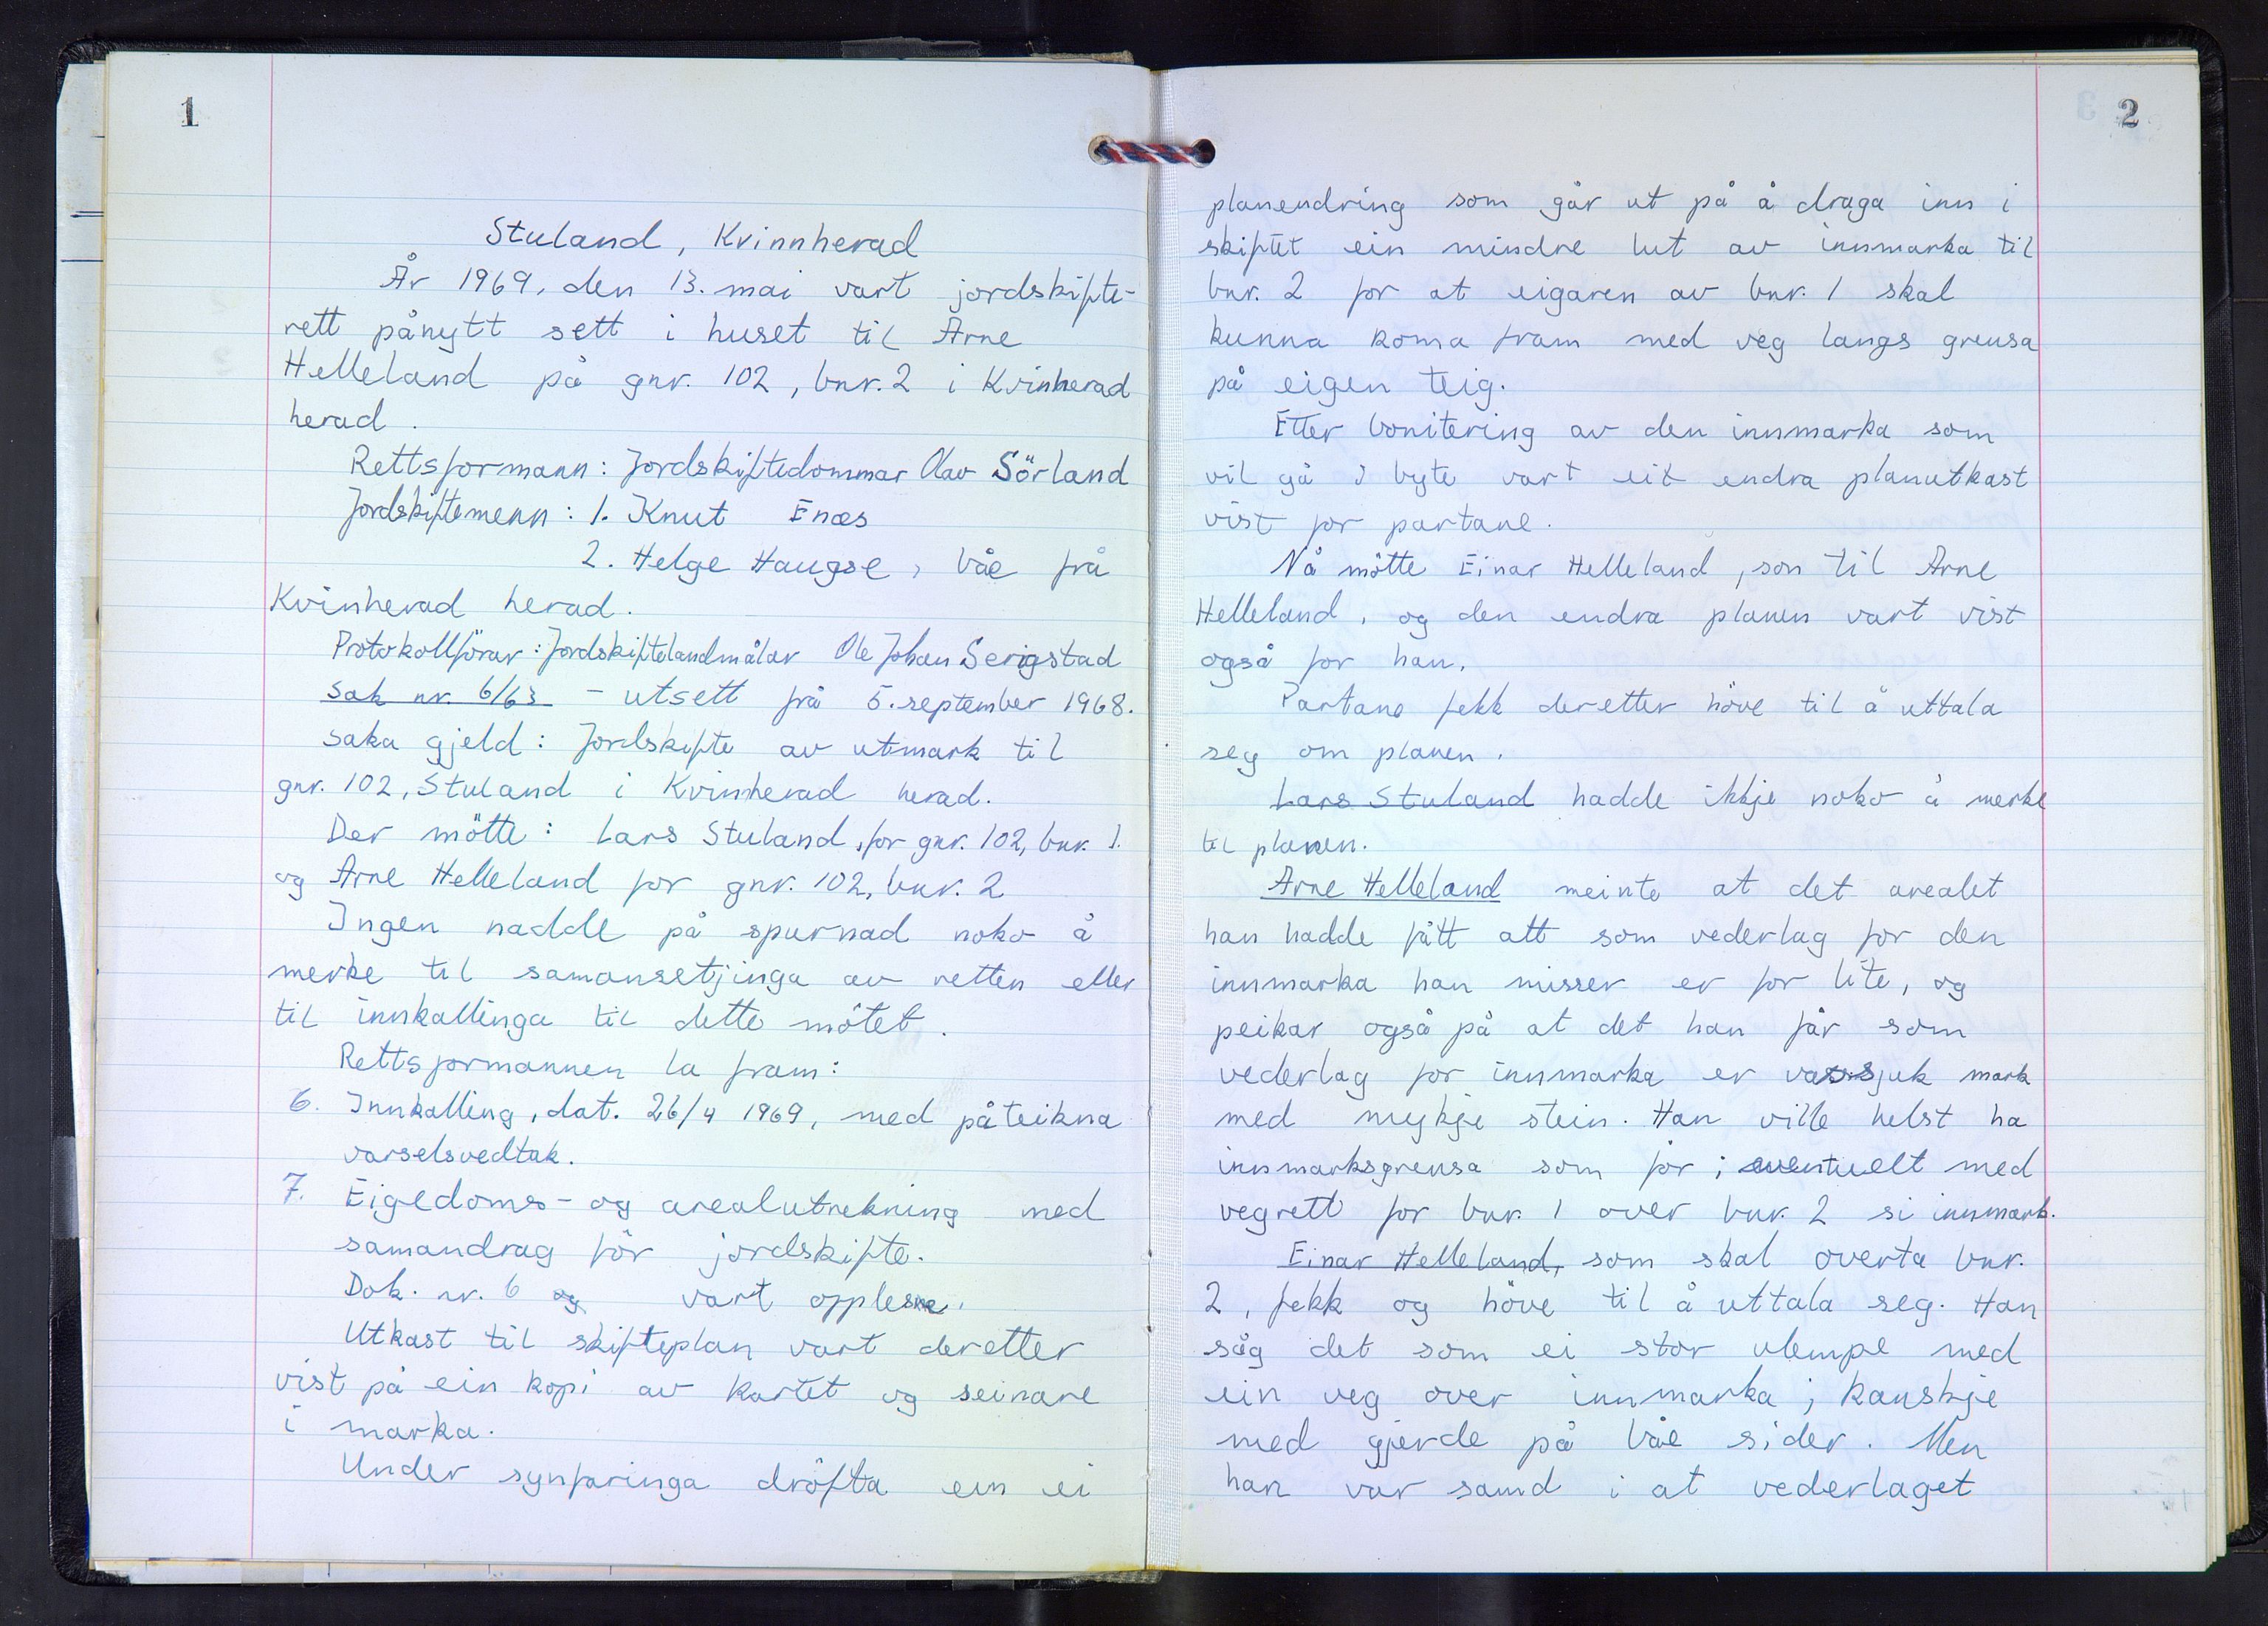 1
Stuland, Kvinnherad
År 1969, den 13. mai vart jordskifte-
rett pånytt sett i huset til Arne
Helleland på gnr. 102, bnr. 2 i Kvinherad
herad.
Rettsformann: Jordskiftedommar Olav Sörland
Jordskiftemenn: 1. Knut Enæs
2. Helge Haugse, båe frå
Kvinherad herad.
Protokollförar: Jordskiftelandmålar Ole Johan Serigstad
sak nr. 6/63 - utsett frå 5. september 1968.
saka gjeld: Jordskifte av utmark til
gnr. 102, Stuland i Kvinherad herad.
Der mötte: Lars Stuland, for gnr. 102, bnr. 1.
og Arne Helleland for gnr. 102, bnr. 2
Ingen hadde på spurnad noko å
merke til samansetjinga av retten eller
til innkallinga til dette mötet.
Rettsformannen la fram:
6. Innkalling, dat. 26/4 1969, med påteikna
varselsvedtak.
7. Eigedoms- og arealutrekning med
samandrag för jordskifte.
Dok. nr. 6 og vart opplesne.
Utkast til skifteplan vart deretter
vist på ein kopi av kartet og seinare
i marka.
Under synfaringa dröfta ein ei
2
planendring som går ut på å draga inn i
skiftet ein mindre lut av innmarka til
bnr. 2 for at eigaren av bnr. 1 skal
kunna koma fram med veg langs grensa
på eigen teig.
Etter bonitering av den innmarka som
vil gå i byte vart eit endra planutkast
vist for partane.
Nå mötte Einar Helleland, son til Arne
Helleland, og den endra planen vart vist
også for han.
Partane fekk deretter höve til å uttala
seg om planen.
Lars Stuland hadde ikkje noko å merke
til planen.
Arne Helleland meinte at det arealet
han hadde fått att som vederlag for den
innmarka han misser er for lite, og
peikar også på at det han får som
vederlag for innmarka er vassjuk mark
med mykje stein. Han ville helst ha
innmarksgrensa som för; eventuelt med
vegrett for bnr. 1 over bnr. 2 si innmark.
Einar Helleland, som skal overta bnr.
2, fekk og höve til å uttala seg. Han
såg det som ei stor ulempe med
ein veg over innmarka; kanskje
med gjerde på båe sider. Men
han var samd i at vederlaget